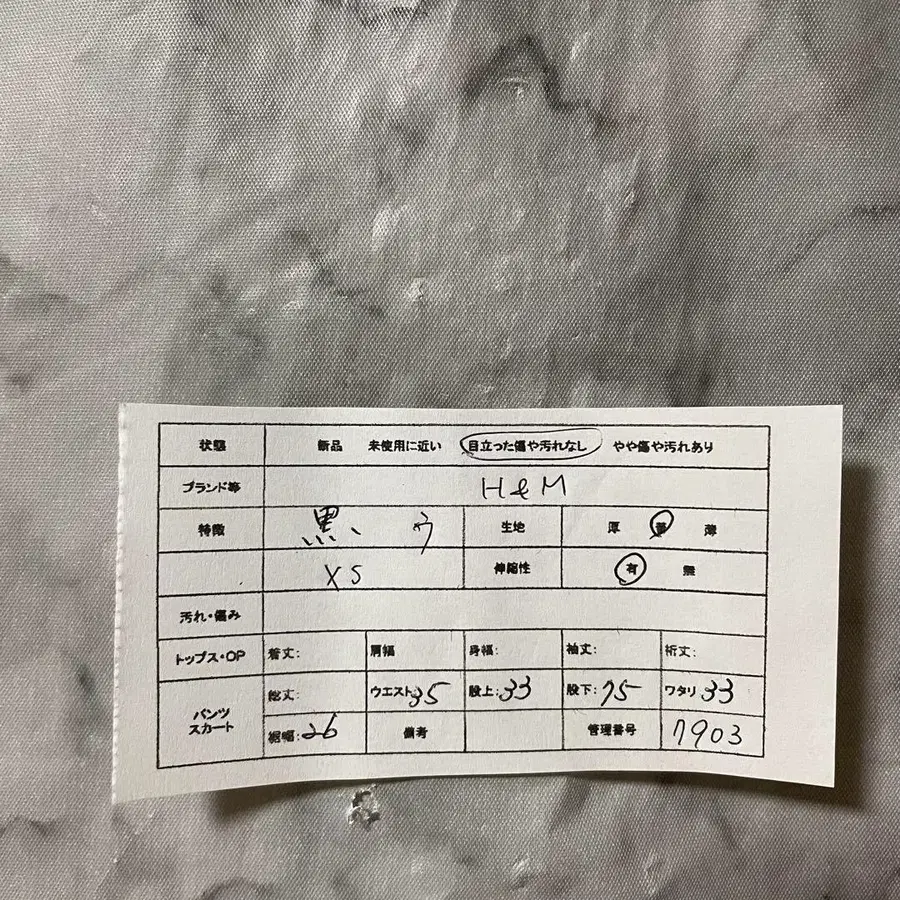 状態 新品 未使用に近い 目立った傷や汚れなし やや傷や汚れあり
ブランド等 H&M
特徴 黒、 ウ 生地 厚 普 薄
XS 伸縮性 有 無
汚れ・傷み
トップス・OP 着丈: 肩幅 身幅: 袖丈: 裄丈:
パンツ スカート 総丈: ウエスト:35 股上:33 股下:75 ワタリ:33
裾幅:26 備考 管理番号 7903